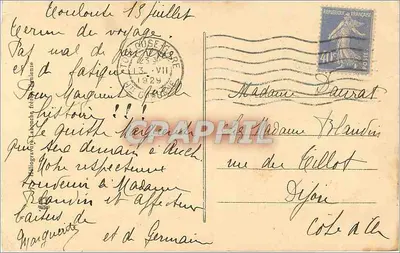 Toulouse 13 juillet
Terme du voyage.
Pas mal de
et de fatigue
Pour Marguerite quelle
histoire !!!
Je quitte Marguerite
qui sera demain à Auch
Votre respectueux
souvenir à Madame
Blandin et affectueux
baisers de
Marguerite et de Germain
TOULOUSE GARE
13 VII
1929
REPUBLIQUE FRANÇAISE
40c
POSTES
Madame
Madame Blandin
rue du Tillot
Dijon
Côte d'Or
DELPHIL